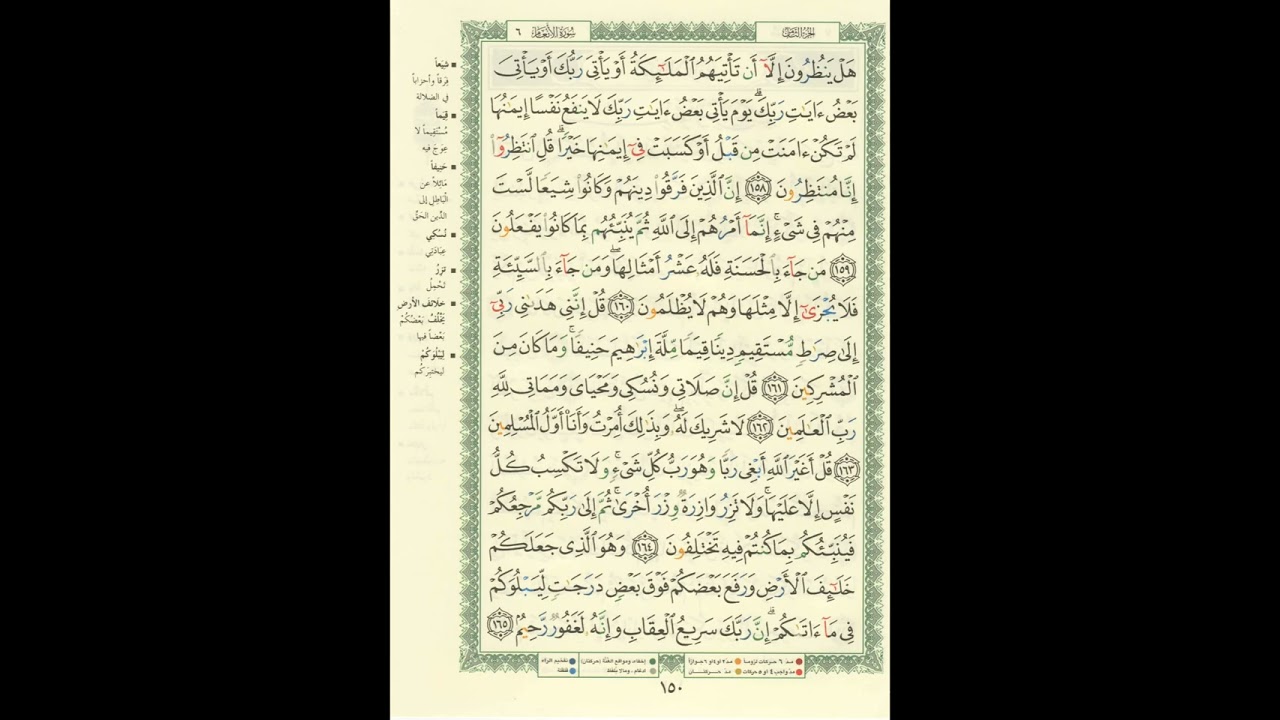 الجزء الثامن
سورة الأنعام ٦
هَلْ يَنظُرُونَ إِلَّآ أَن تَأْتِيَهُمُ ٱلْمَلَٰٓئِكَةُ أَوْ يَأْتِىَ رَبُّكَ أَوْ يَأْتِىَ
بَعْضُ ءَايَٰتِ رَبِّكَ ۗ يَوْمَ يَأْتِى بَعْضُ ءَايَٰتِ رَبِّكَ لَا يَنفَعُ نَفْسًا إِيمَٰنُهَا
لَمْ تَكُنْ ءَامَنَتْ مِن قَبْلُ أَوْ كَسَبَتْ فِىٓ إِيمَٰنِهَا خَيْرًا ۗ قُلِ ٱنتَظِرُوٓا۟
إِنَّا مُنتَظِرُونَ ١٥٨ إِنَّ ٱلَّذِينَ فَرَّقُوا۟ دِينَهُمْ وَكَانُوا۟ شِيَعًا لَّسْتَ
مِنْهُمْ فِى شَىْءٍ ۚ إِنَّمَآ أَمْرُهُمْ إِلَى ٱللَّهِ ثُمَّ يُنَبِّئُهُم بِمَا كَانُوا۟ يَفْعَلُونَ
١٥٩ مَن جَآءَ بِٱلْحَسَنَةِ فَلَهُۥ عَشْرُ أَمْثَالِهَا ۖ وَمَن جَآءَ بِٱلسَّيِّئَةِ
فَلَا يُجْزَىٰٓ إِلَّا مِثْلَهَا وَهُمْ لَا يُظْلَمُونَ ١٦٠ قُلْ إِنَّنِى هَدَىٰنِى رَبِّىٓ
إِلَىٰ صِرَٰطٍ مُّسْتَقِيمٍ دِينًا قِيَمًا مِّلَّةَ إِبْرَٰهِيمَ حَنِيفًا ۚ وَمَا كَانَ مِنَ
ٱلْمُشْرِكِينَ ١٦١ قُلْ إِنَّ صَلَاتِى وَنُسُكِى وَمَحْيَاىَ وَمَمَاتِى لِلَّهِ
رَبِّ ٱلْعَٰلَمِينَ ١٦٢ لَا شَرِيكَ لَهُۥ ۖ وَبِذَٰلِكَ أُمِرْتُ وَأَنَا۠ أَوَّلُ ٱلْمُسْلِمِينَ
١٦٣ قُلْ أَغَيْرَ ٱللَّهِ أَبْغِى رَبًّا وَهُوَ رَبُّ كُلِّ شَىْءٍ ۚ وَلَا تَكْسِبُ كُلُّ
نَفْسٍ إِلَّا عَلَيْهَا ۚ وَلَا تَزِرُ وَازِرَةٌ وِزْرَ أُخْرَىٰ ۚ ثُمَّ إِلَىٰ رَبِّكُم مَّرْجِعُكُمْ
فَيُنَبِّئُكُم بِمَا كُنتُمْ فِيهِ تَخْتَلِفُونَ ١٦٤ وَهُوَ ٱلَّذِى جَعَلَكُمْ
خَلَٰٓئِفَ ٱلْأَرْضِ وَرَفَعَ بَعْضَكُمْ فَوْقَ بَعْضٍ دَرَجَٰتٍ لِّيَبْلُوَكُمْ
فِى مَآ ءَاتَىٰكُمْ ۗ إِنَّ رَبَّكَ سَرِيعُ ٱلْعِقَابِ وَإِنَّهُۥ لَغَفُورٌ رَّحِيمٌۢ ١٦٥
■ شِيَعاً
فِرَقاً وأحزاباً
في الضلالة
■ قِيَماً
مُسْتَقِيماً لا
عِوَجَ فيه
■ حَنِيفاً
مَائِلاً عن
الْبَاطِلِ إلى
الدِّينِ الحَقِّ
■ نُسُكِي
عِبَادَتِي
■ تَزِرُ
تَحْمِلُ
■ خَلائِفَ الأرض
يَخْلُفُ بَعْضُكُمْ
بَعْضاً فيها
■ لِيَبْلُوَكُمْ
ليختبركُم
مدّ ٦ حركات لزوماً مدّ ٢ أو ٤ أو ٦ جوازاً
مدّ واجب ٤ أو ٥ حركات مدّ حركتان
إخفاء، ومواقع الغُنَّة (حركتان)
إدغام، ومالا يُلفَظ
تفخيم الراء
قلقلة
١٥٠